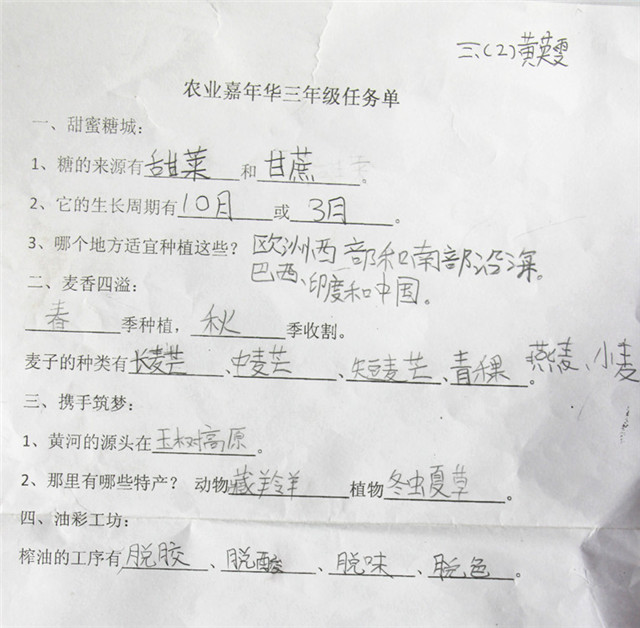 三、(2)黄英雯
农业嘉年华三年级任务单
一、甜蜜糖城：
1、糖的来源有甜菜和甘蔗。
2、它的生长周期有10月或3月。
3、哪个地方适宜种植这些？欧洲西部和南部沿海。
巴西、印度和中国。
二、麦香四溢：
春季种植，秋季收割。
麦子的种类有长麦芒、中麦芒、短麦芒、青稞。燕麦、小麦
三、携手筑梦：
1、黄河的源头在玉树高原。
2、那里有哪些特产？ 动物藏羚羊植物冬虫夏草。
四、油彩工坊：
榨油的工序有脱胶、脱酸、脱味、脱色。